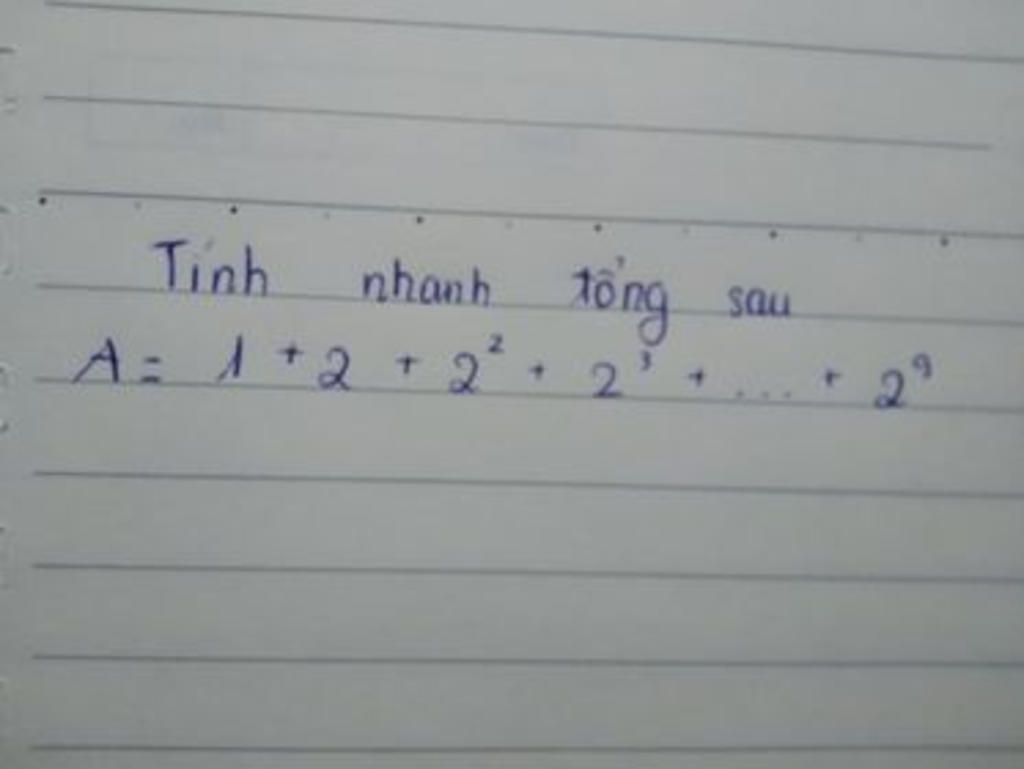 Tính nhanh tổng sau
A = 1 + 2 + 2² + 2³ + ... + 2⁹